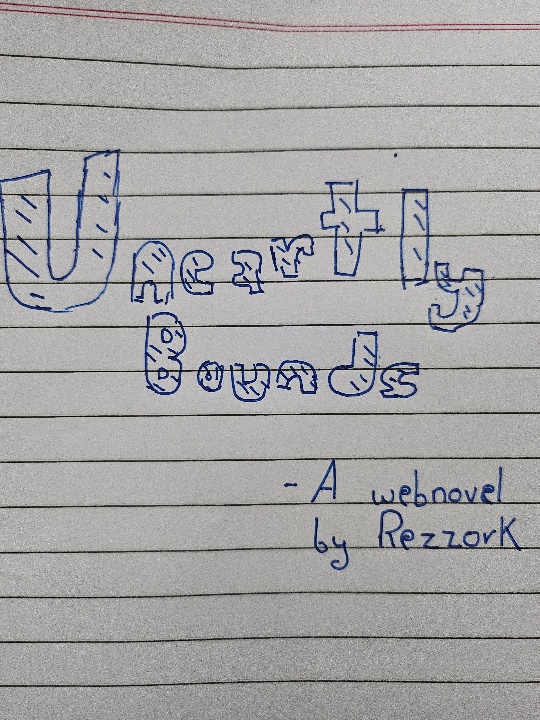 Uneartly
Bounds
- A webnovel
by Rezzork